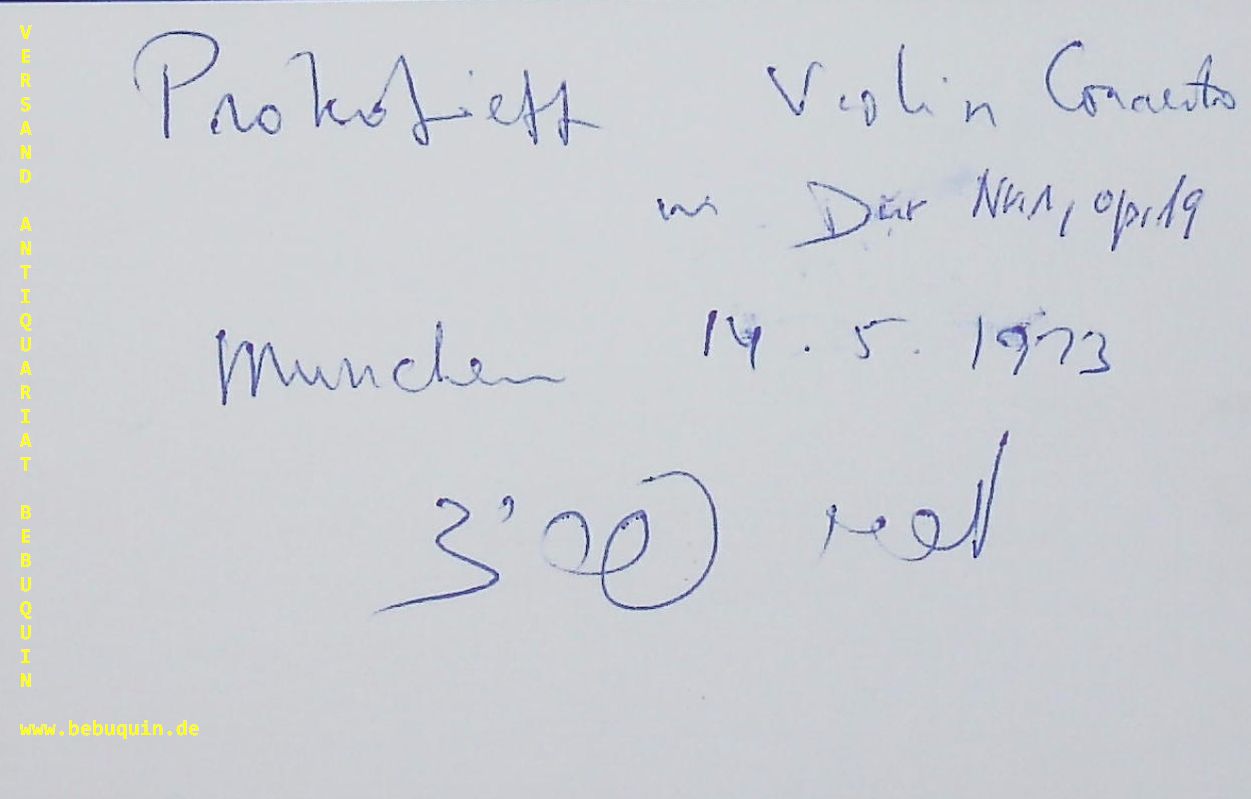 VERSAND ANTIQUARIAT BEBUQUIN
Prokofieff Violin Concerto
in Dur Nr.1, op.19
München 14.5.1973
3'00
www.bebuquin.de